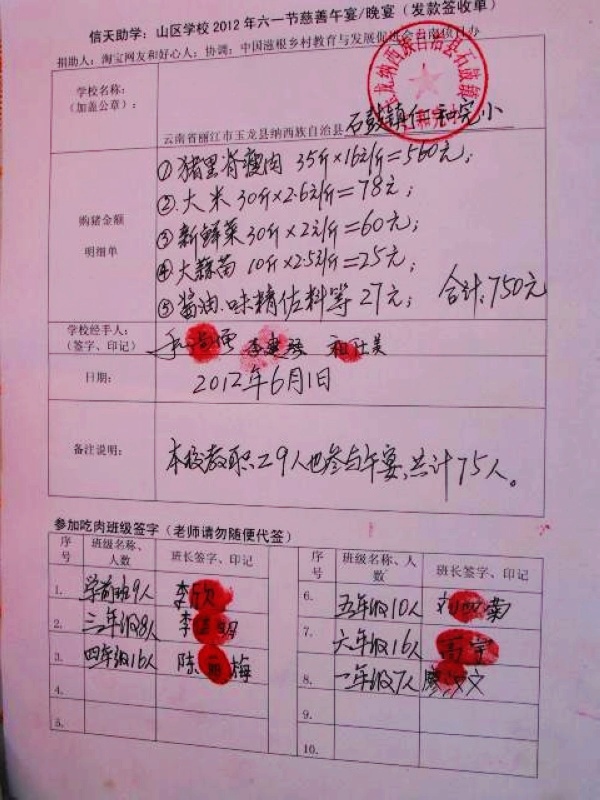 信天助学：山区学校2012年六一节慈善午宴/晚宴（发款签收单）
捐助人：淘宝网友和好心人；协调：中国滋根乡村教育与发展促进会云南项目办
学校名称：
（加盖公章）：
云南省丽江市玉龙县纳西族自治县石鼓镇仁和完小
购猪金额
明细单
①猪里脊瘦肉 35斤×16元/斤=560元；
②大米30斤×2.6元/斤=78元；
③新鲜菜30斤×2元/斤=60元；
④大蒜苗 10斤×2.5元/斤=25元；
⑤酱油、味精佐料等 27元； 合计：750元
学校经手人：
（签字、印记）
日期：
2012年6月1日
备注说明：
本校教职工9人也参与午宴，共计75人。
参加吃肉班级签字（老师请勿随便代签）
序号 班级名称、人数 班长签字、印记
1. 学前班9人 李欣
2. 三年级8人 李 明
3. 四年级16人 陈丽梅
4.
5.
序号 班级名称、人数 班长签字、印记
6. 五年级10人 刘 菊
7. 六年级16人 高宇
8. 一年级7人 廖 文
9.
10.